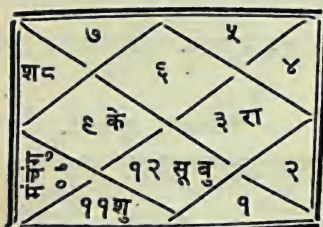 ७ ५
श८ ६ ४
९ के ३ रा
मंचंगु १०
१२ सू वु २
११शु १